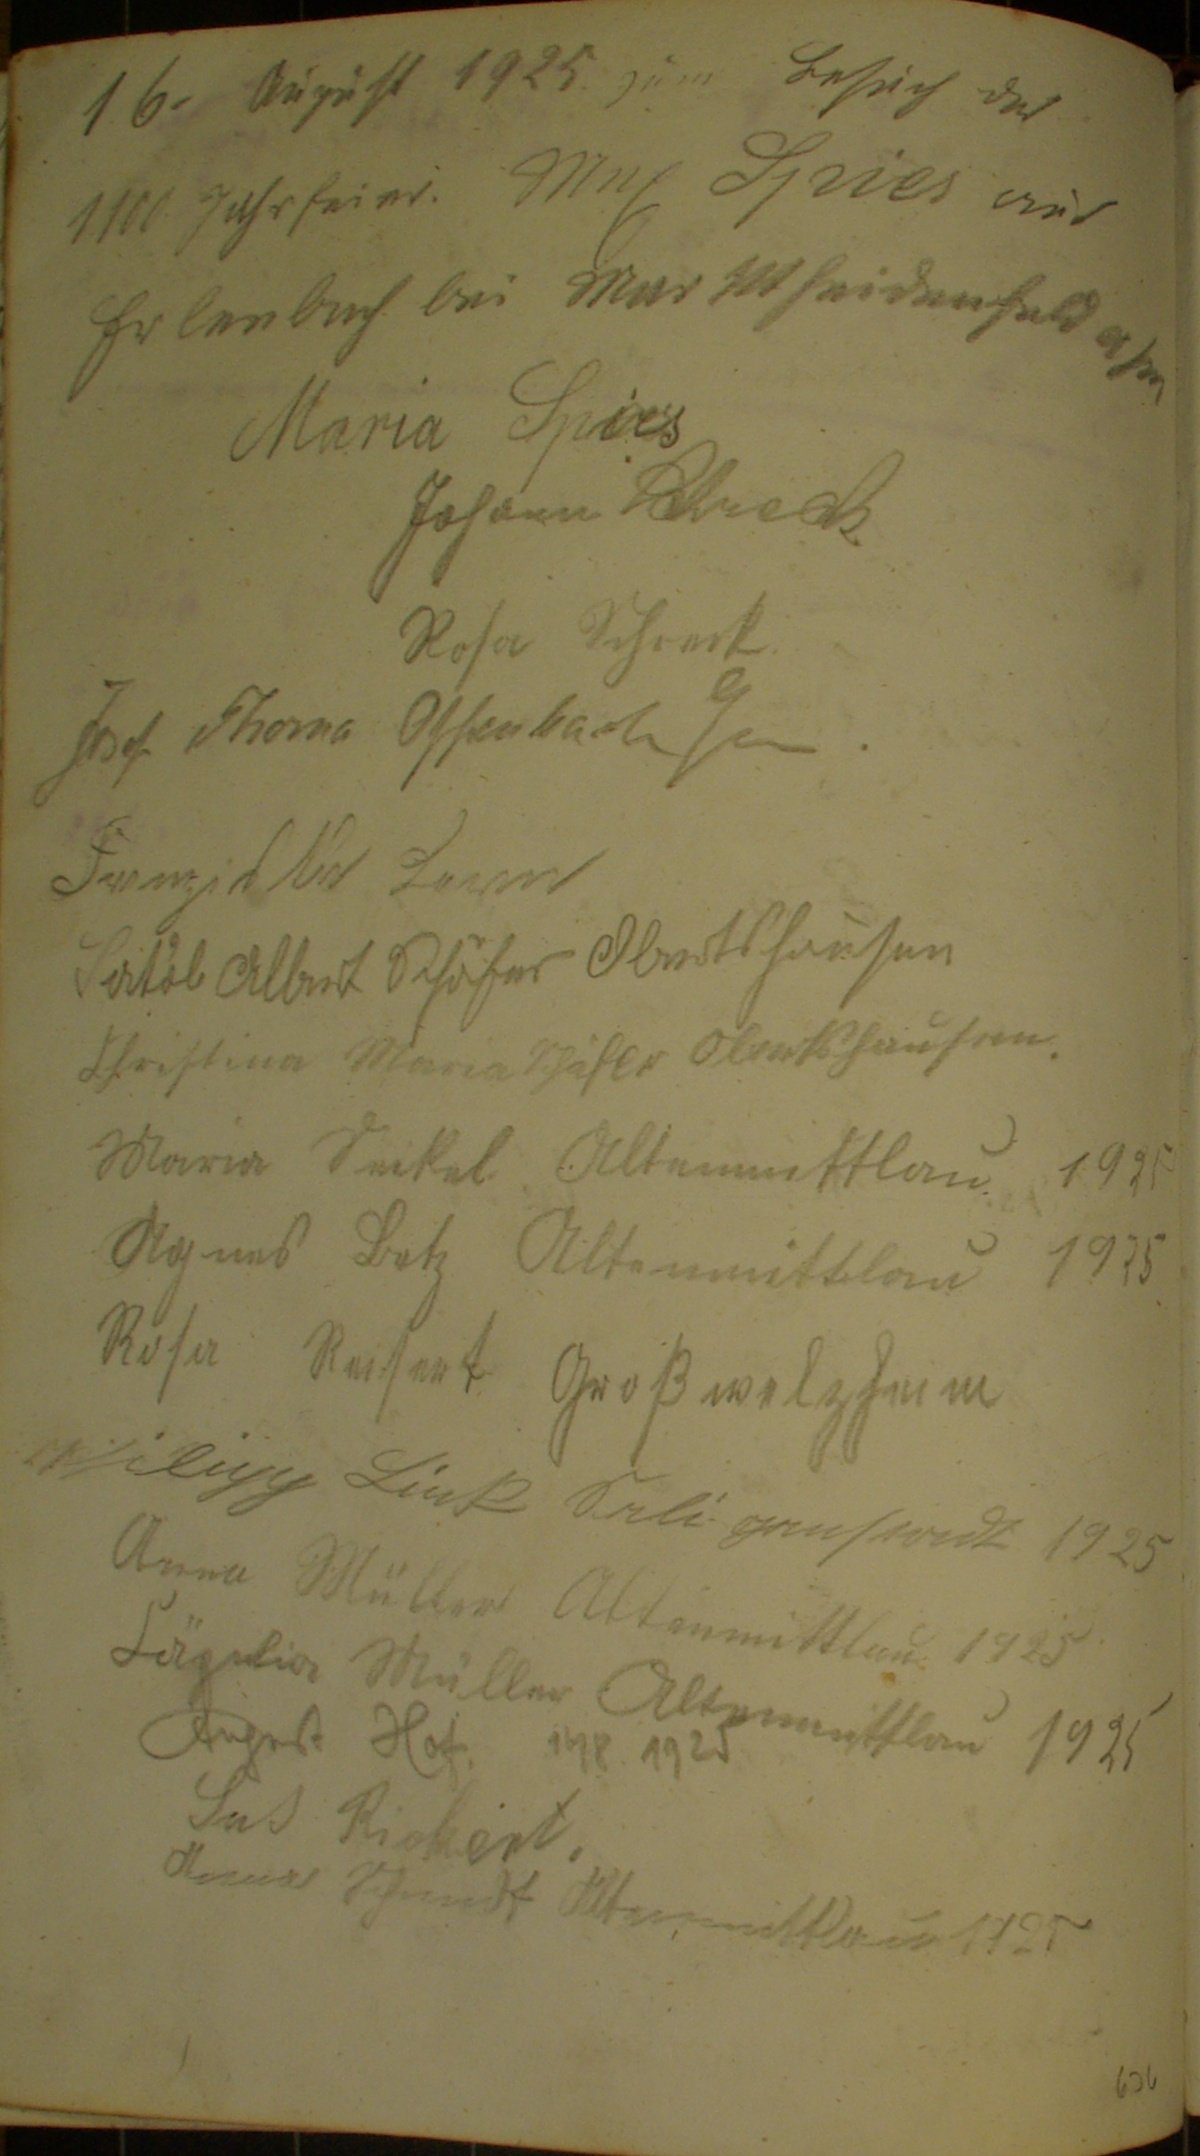 16. August 1925 zum Besuch der
1100 Jahrfeier. Max Spies aus
Erlenbach bei Marktheidenfeld a/m
Maria Spies
Johann Schreck
Rosa Schreck.
Josef Thoma Offenbach
Franziska
Jakob Albert Schäfer Obertshausen
Christina Maria Schäfer Obertshausen.
Maria Seikel Altenmittlau. 1925
Agnes Betz Altenmittlau 1925
Rosa Reisert Großwelzheim
Philipp Link Seligenstadt 1925
Anna Müller Altenmittlau 1925
Müller Altenmittlau 1925
August Hof. 1925
Rickert.
Anna Schmidt Altenmittlau 1925
636